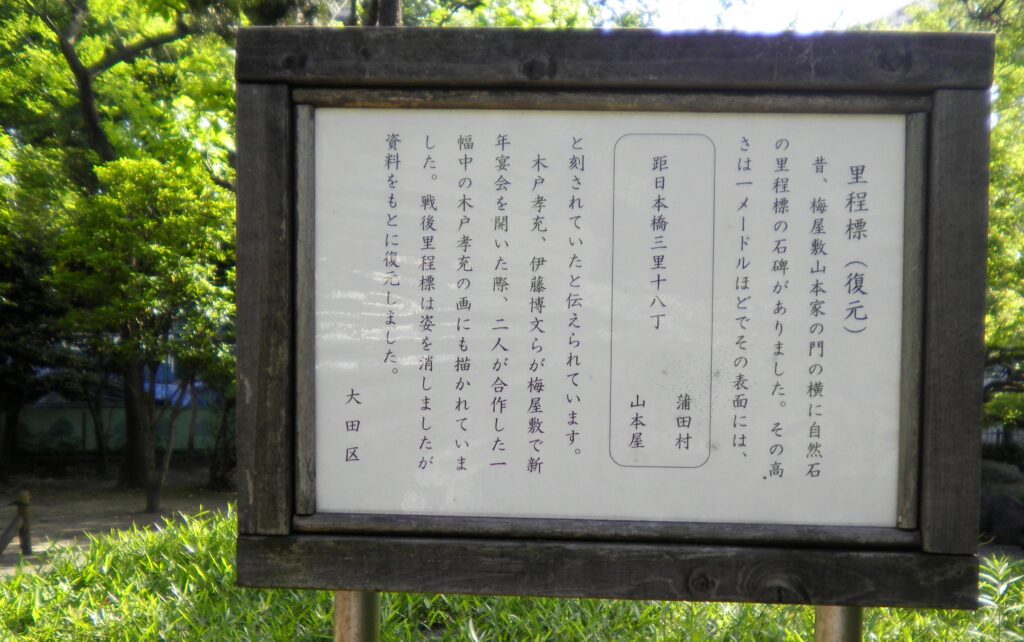 里程標（復元）
昔、梅屋敷山本家の門の横に自然石
の里程標の石碑がありました。その高
さは一メードルほどでその表面には、
蒲田村
距日本橋三里十八丁
山本屋
と刻されていたと伝えられています。
木戸孝充、伊藤博文らが梅屋敷で新
年宴会を開いた際、二人が合作した一
幅中の木戸孝充の画にも描かれていま
した。戦後里程標は姿を消しましたが
資料をもとに復元しました。
大田区